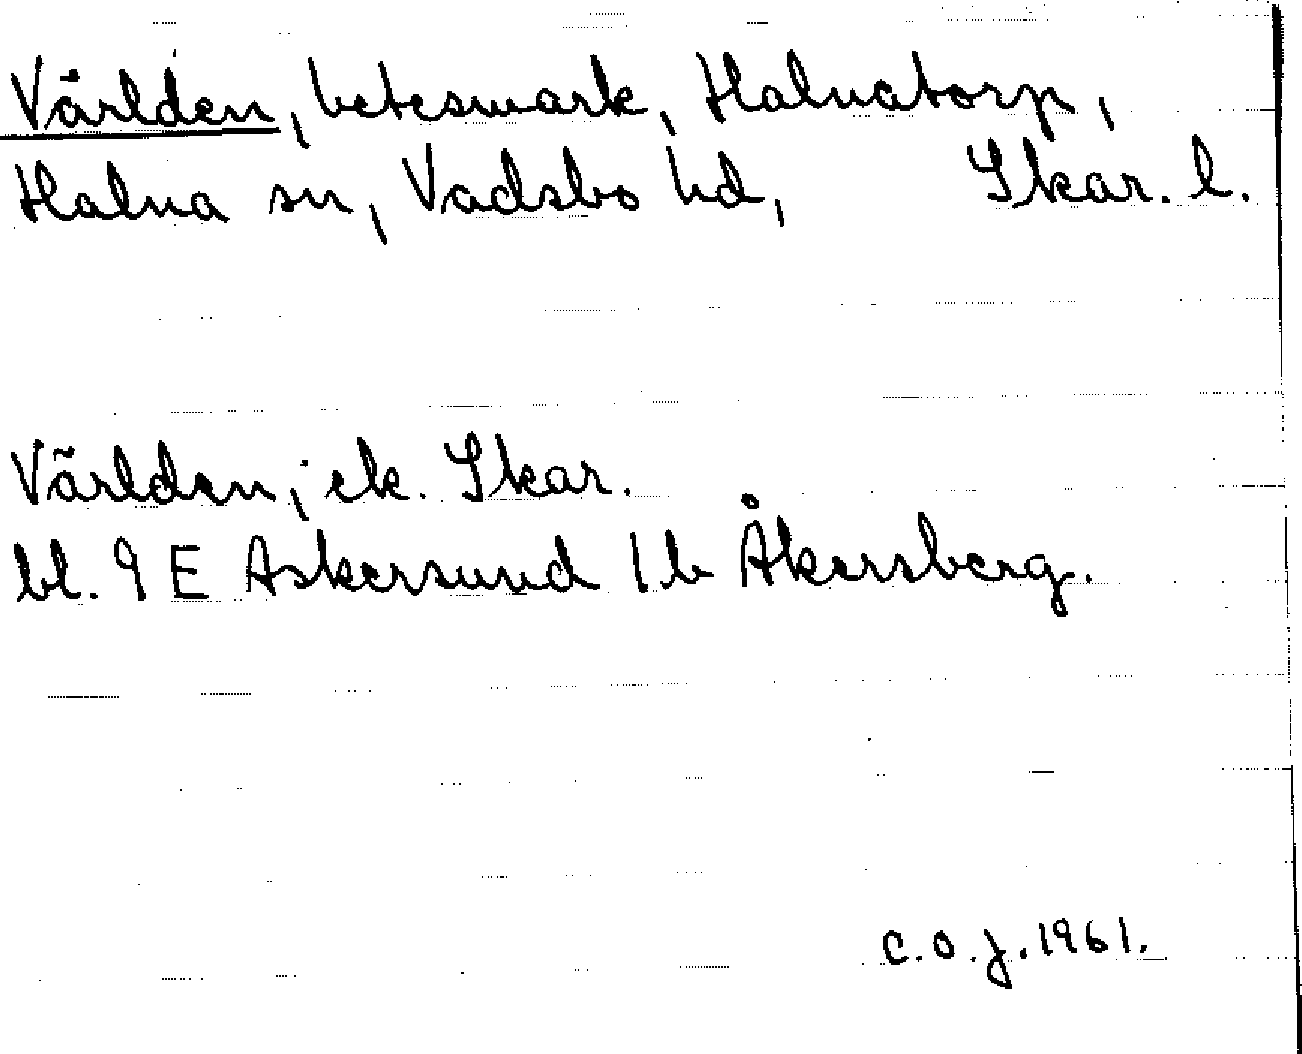 Världen, betesmark, Halnatorp,
Halna sn, Vadsbo hd, Skar. l.
Världen, ek. Skar.
bl. 9 E Askersund 1 b Åkersberg.
C.O.J. 1961.